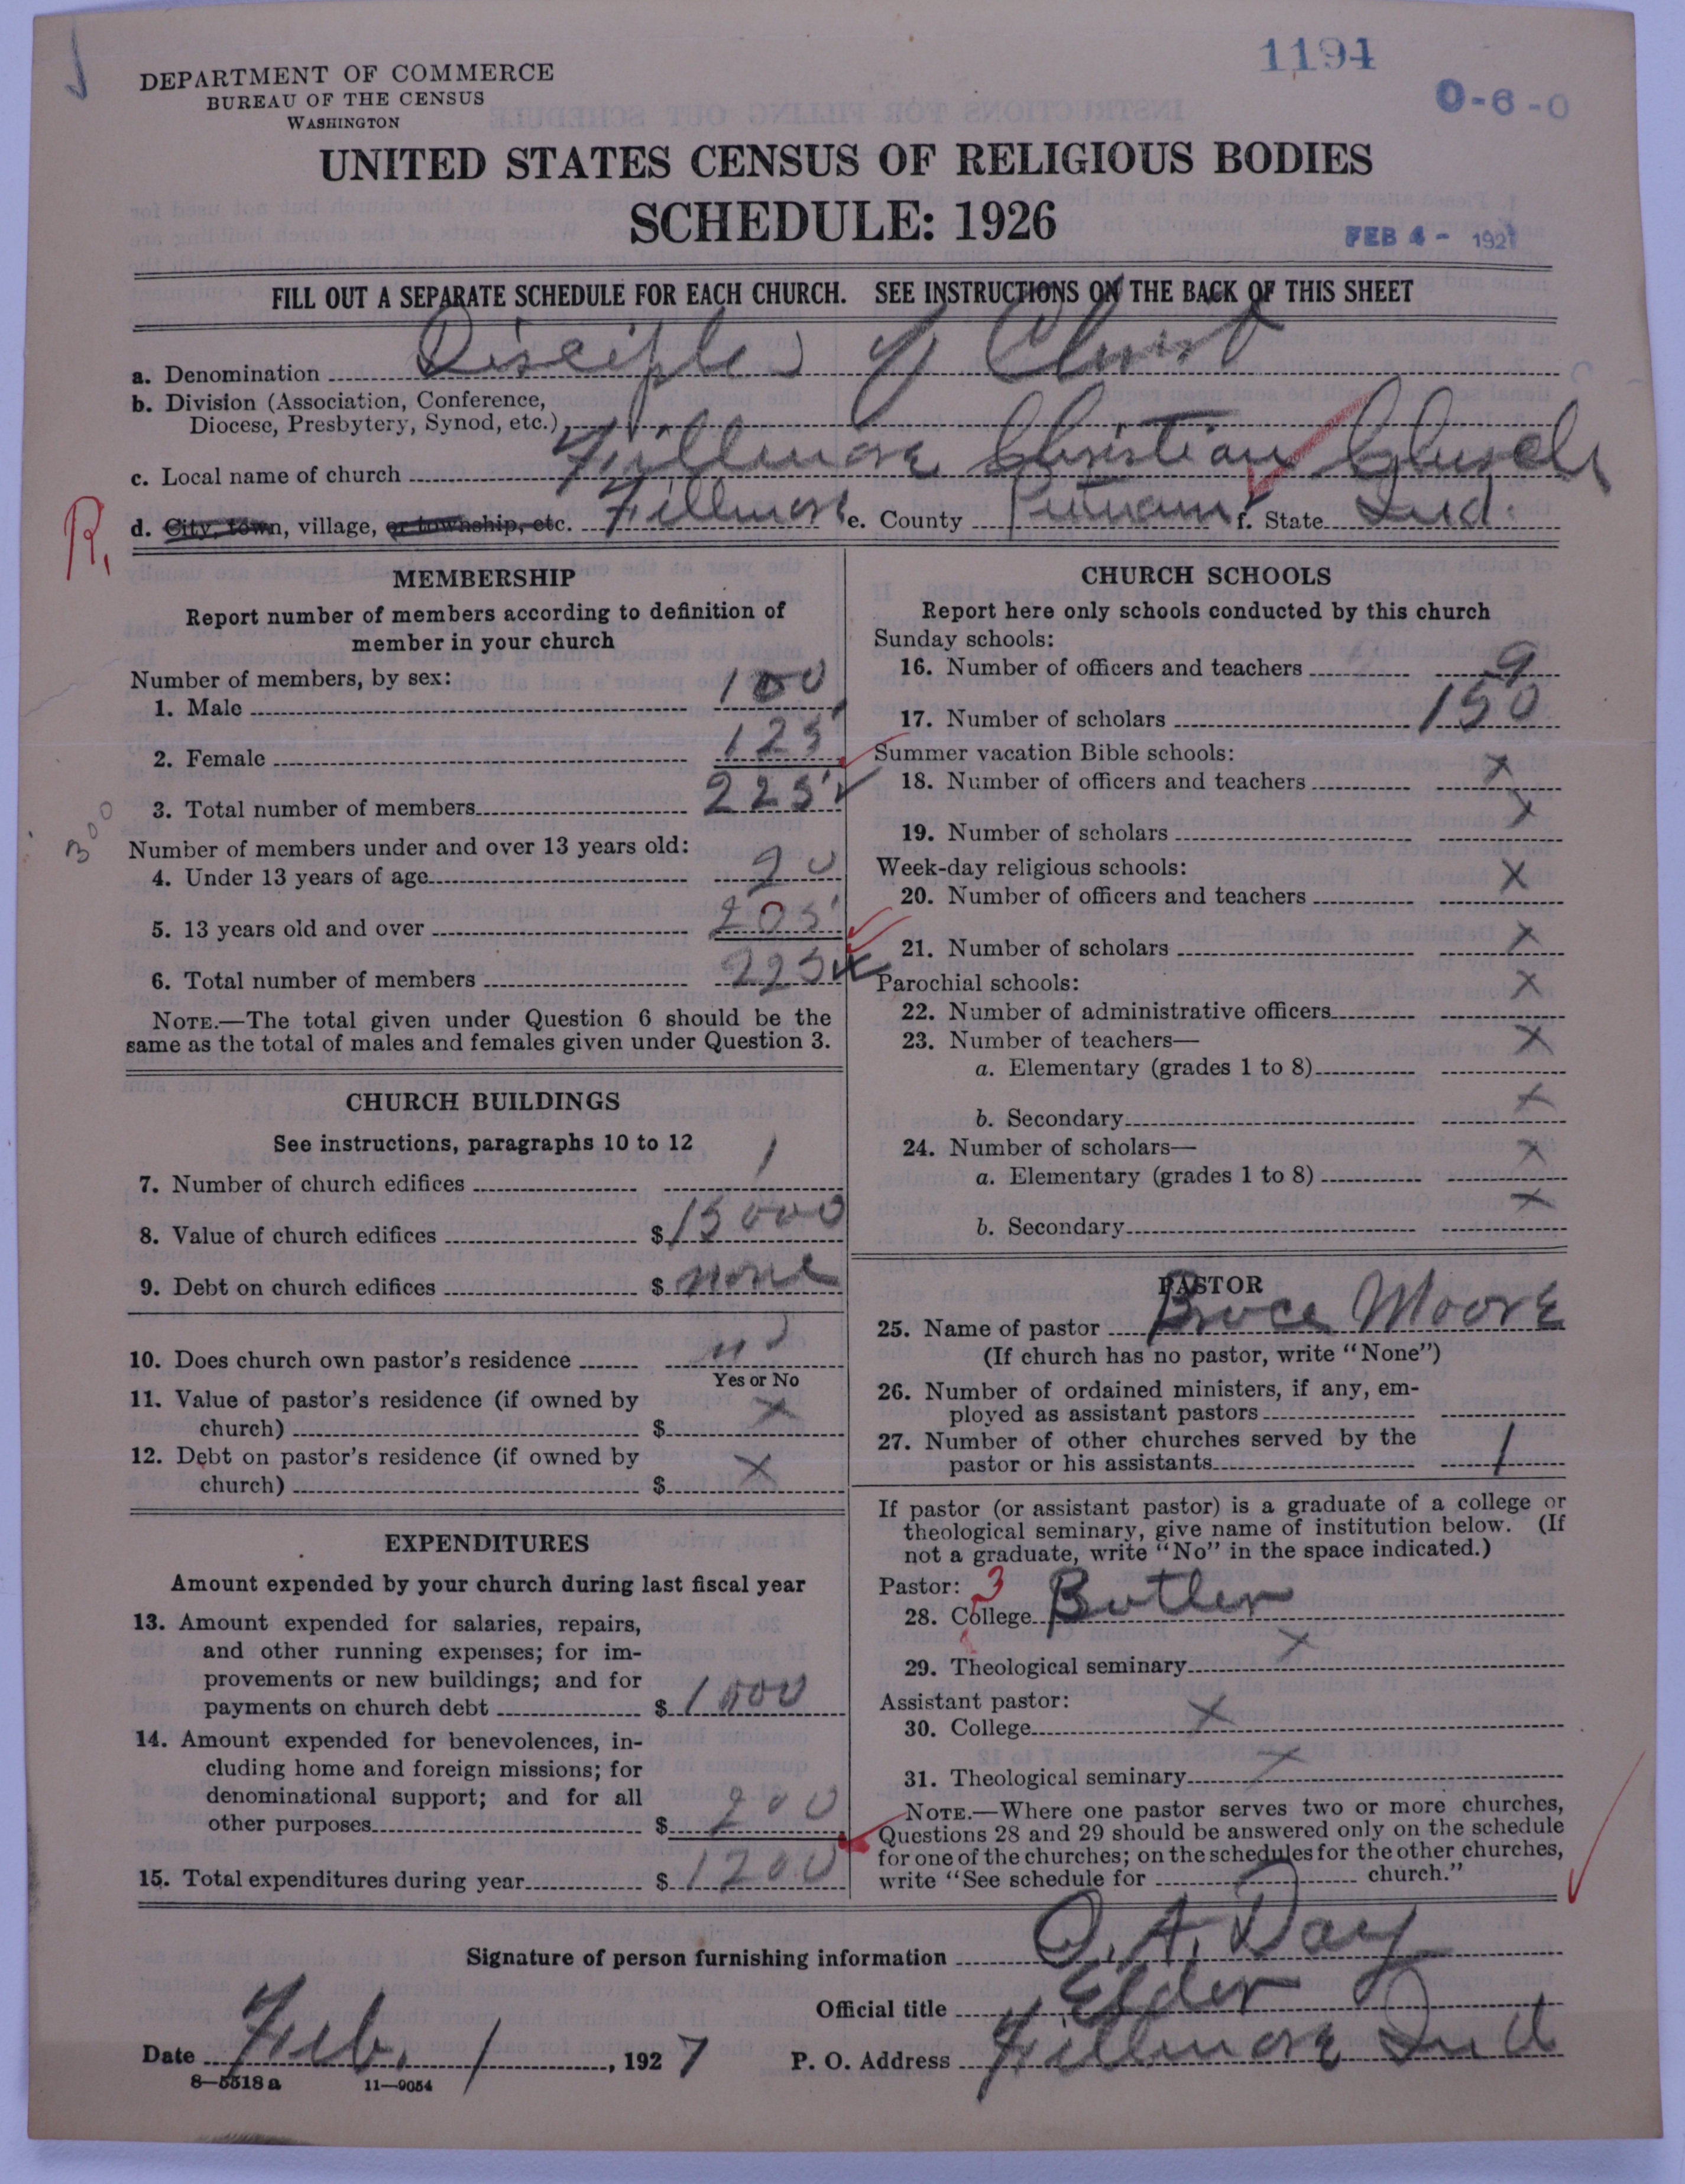 1194
DEPARTMENT OF COMMERCE
BUREAU OF THE CENSUS
WASHINGTON
0-6-0
UNITED STATES CENSUS OF RELIGIOUS BODIES
SCHEDULE: 1926
FEB 4 - 1927
FILL OUT A SEPARATE SCHEDULE FOR EACH CHURCH. SEE INSTRUCTIONS ON THE BACK OF THIS SHEET
a. Denomination Disciples of Christ
b. Division (Association, Conference,
Diocese, Presbytery, Synod, etc.)
c. Local name of church Fillmore Christian Church
R, d. City, town, village, or township, etc. Fillmore e. County Putnam f. State Ind.
MEMBERSHIP
Report number of members according to definition of
member in your church
Number of members, by sex:
1. Male 100
2. Female 125
3. Total number of members 225
300
Number of members under and over 13 years old:
4. Under 13 years of age 20
5. 13 years old and over 205
6. Total number of members 225
NOTE.—The total given under Question 6 should be the
same as the total of males and females given under Question 3.
CHURCH BUILDINGS
See instructions, paragraphs 10 to 12
7. Number of church edifices 1
8. Value of church edifices $ 15000
9. Debt on church edifices $ none
10. Does church own pastor's residence no
Yes or No
11. Value of pastor's residence (if owned by
church) $ x
12. Debt on pastor's residence (if owned by
church) $ x
EXPENDITURES
Amount expended by your church during last fiscal year
13. Amount expended for salaries, repairs,
and other running expenses; for im-
provements or new buildings; and for
payments on church debt $ 1000
14. Amount expended for benevolences, in-
cluding home and foreign missions; for
denominational support; and for all
other purposes $ 200
15. Total expenditures during year $ 1200
CHURCH SCHOOLS
Report here only schools conducted by this church
Sunday schools:
16. Number of officers and teachers 9
17. Number of scholars 150
Summer vacation Bible schools:
18. Number of officers and teachers x
19. Number of scholars x
Week-day religious schools:
20. Number of officers and teachers x
21. Number of scholars x
Parochial schools:
22. Number of administrative officers x
23. Number of teachers—
a. Elementary (grades 1 to 8) x
b. Secondary x
24. Number of scholars—
a. Elementary (grades 1 to 8) x
b. Secondary x
PASTOR
25. Name of pastor Bruce Moore
(If church has no pastor, write "None")
26. Number of ordained ministers, if any, em-
ployed as assistant pastors
27. Number of other churches served by the
pastor or his assistants 1
If pastor (or assistant pastor) is a graduate of a college or
theological seminary, give name of institution below. (If
not a graduate, write "No" in the space indicated.)
Pastor: 3
28. College Butler
29. Theological seminary x
Assistant pastor:
30. College x
31. Theological seminary x
NOTE.—Where one pastor serves two or more churches,
Questions 28 and 29 should be answered only on the schedule
for one of the churches; on the schedules for the other churches,
write "See schedule for church."
Signature of person furnishing information O. A. Day
Official title Elder
Date Feb. 1, 1927 P. O. Address Fillmore Ind
8—5518 a 11—9054